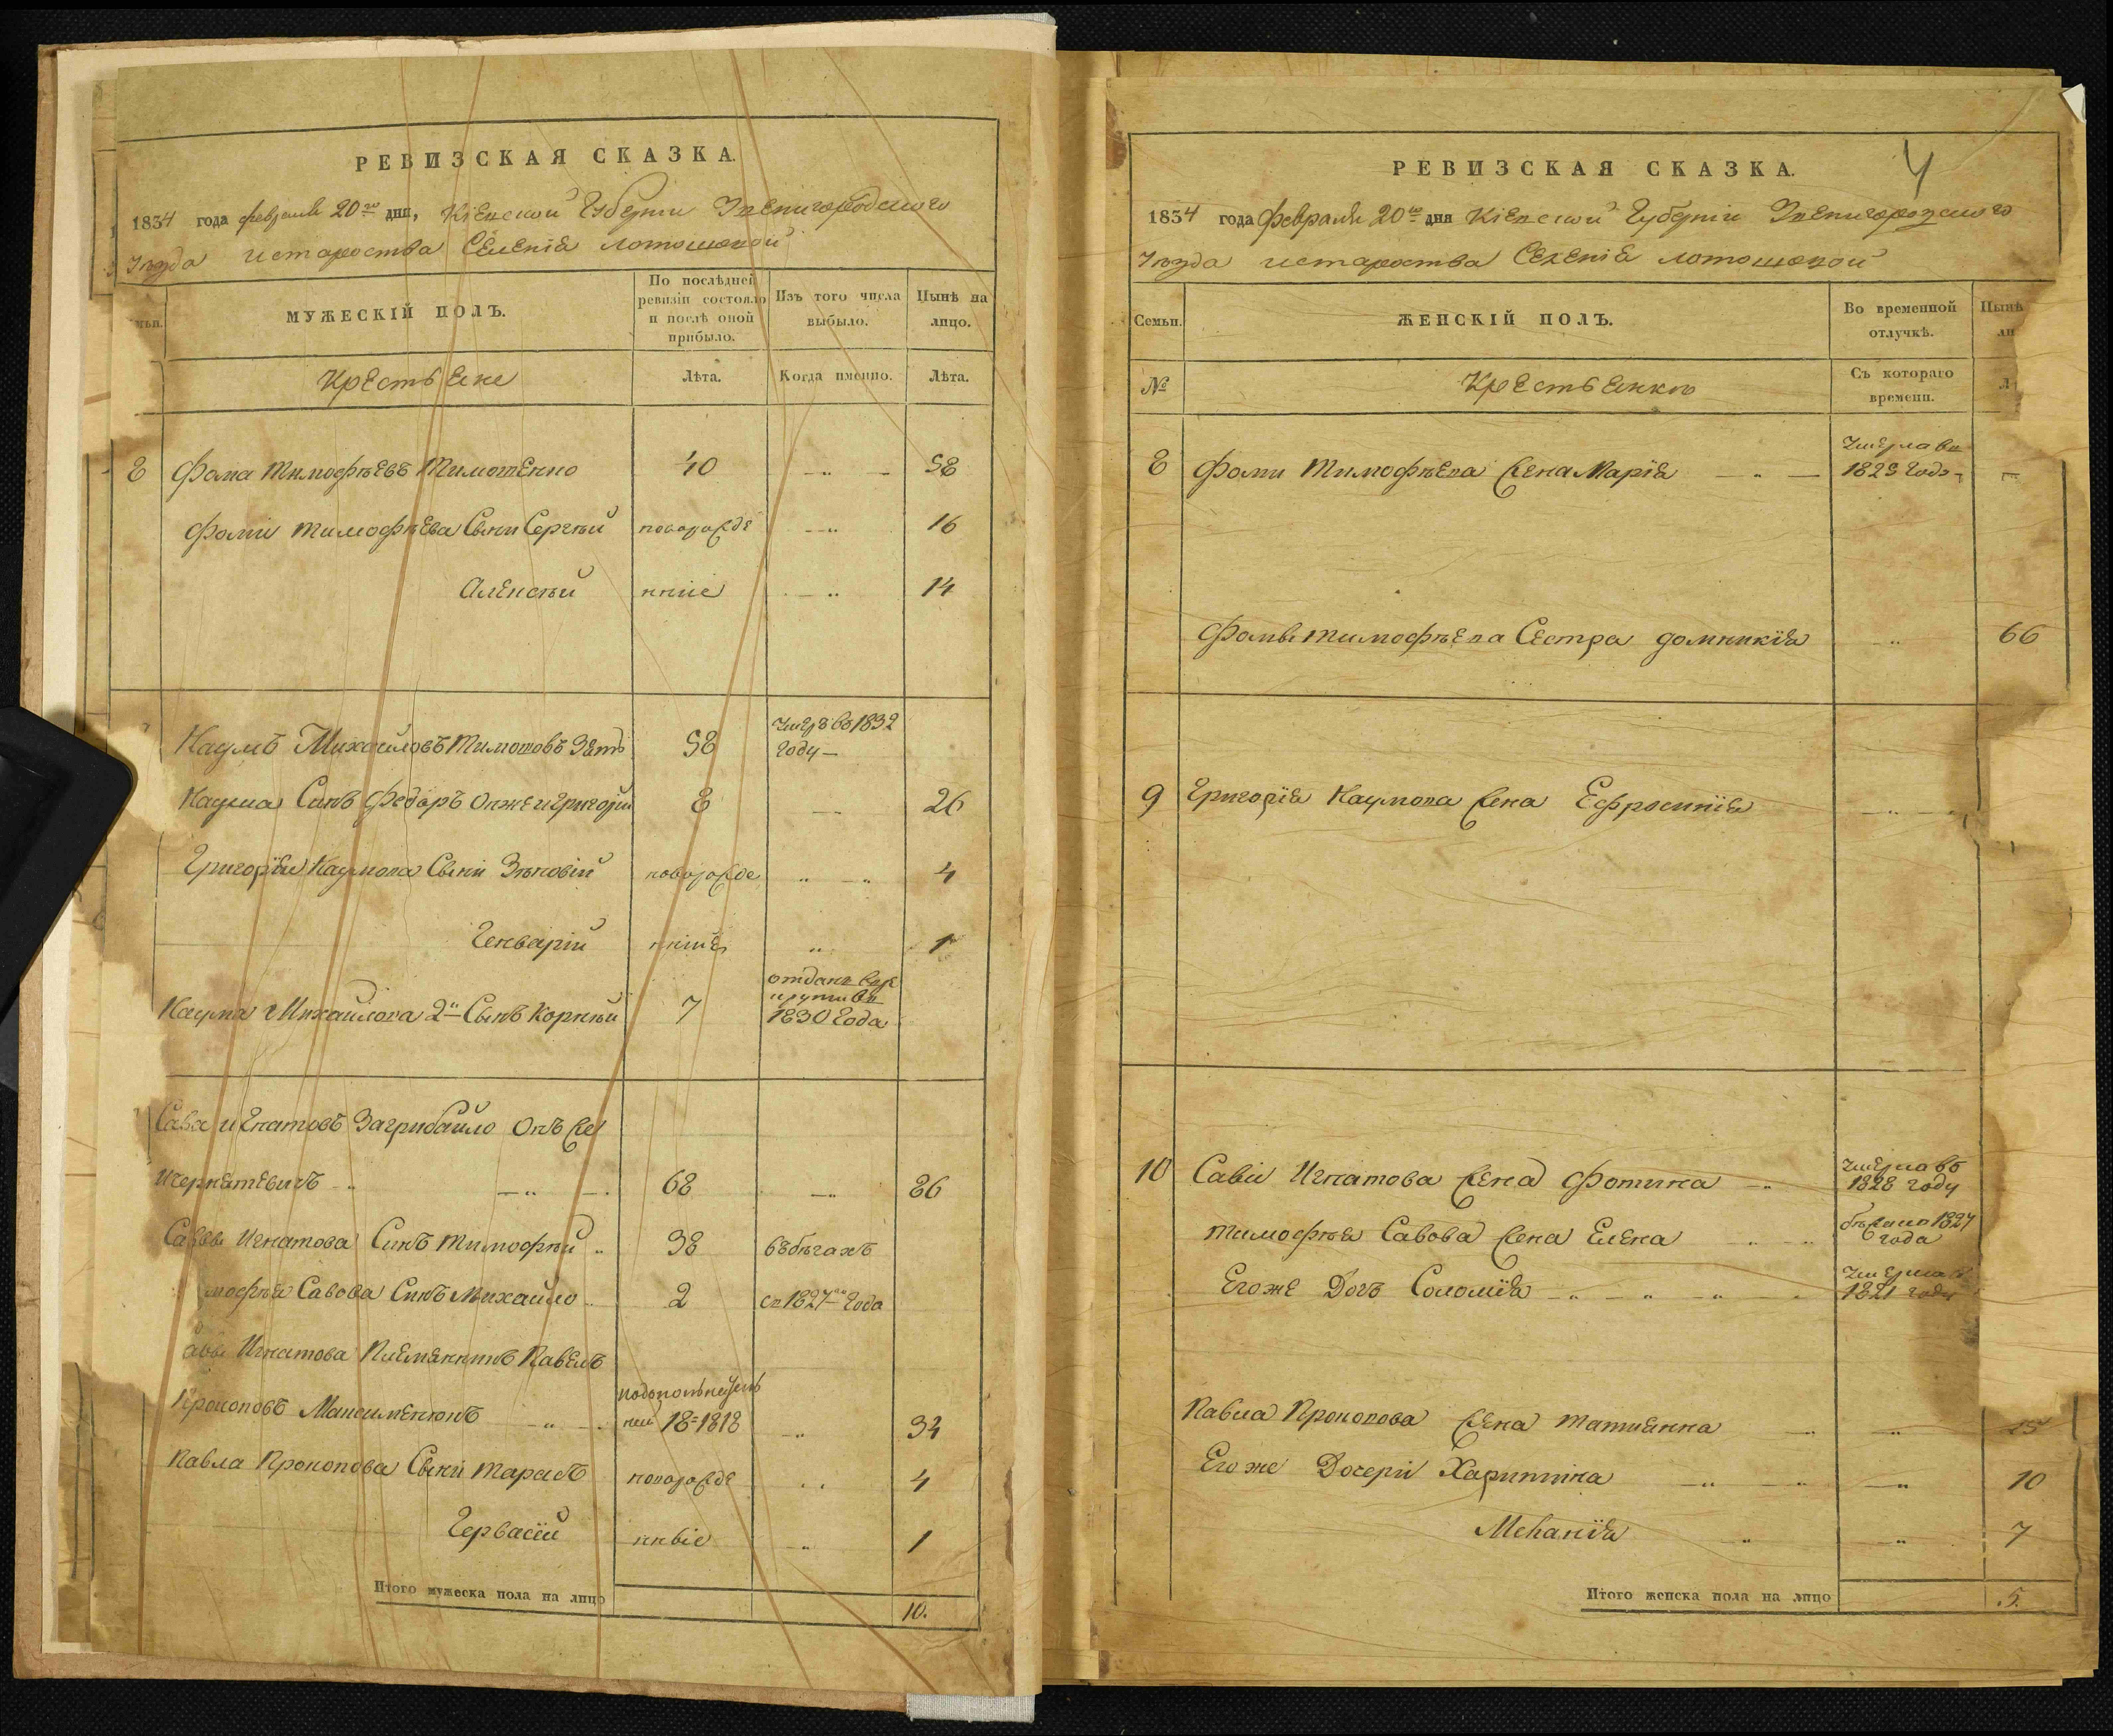 РЕВИЗСКАЯ СКАЗКА.
1834 года февраля 20го дня, Кіевской Губерніи Звенигородского
уезда и староства Селенія
МУЖЕСКІЙ ПОЛЪ.
По послѣдней ревизіи состояло и послѣ оной прибыло.
Изъ того числа выбыло.
Нынѣ на лицо.
Крестьяне
Лѣта.
Когда именно.
Лѣта.
8 Фома Тимофѣевъ Тимошенко 40 58
Фомы Тимофѣева Сыны Сергѣй новорожде 16
Алексѣй нные 14
Наумъ Михайловъ Тимошовъ Зять 58 умеръ въ 1832 году
Наума Синъ Федоръ онже и Григорій 8 26
Григорія Наумова Сыны Зѣновій новорожде 4
Генварій нные 1
Наума Михайлова 2й Сынъ Корнѣй 7 отданъ в рекруты в 1830 Года
Сава Игнатовъ Загрибайло онъ же
68 86
Саввы Игнатова Синъ Тимофѣй 38 въ бѣгахъ
мофѣя Савова Синъ Михайло 2 съ 1827го Года
аввы Игнатова Племянникъ Павелъ
Прокоповъ Максименко 18 = 1818 34
Павла Прокопова Сыны Тарасъ новорожде 4
Гервасій нные 1
Итого мужеска пола на лицо 10.
4
РЕВИЗСКАЯ СКАЗКА.
1834 года Февраля 20го дня Кіевской Губерніи Звенигородского
уезда и староства Селенія
Семьи.
ЖЕНСКІЙ ПОЛЪ.
Во временной отлучкѣ.
Нынѣ
№
Крестьянки
Съ котораго времени.
8 Фомы Тимофѣева жена Марія умерла в 1825 Году
Фомы Тимофѣева Сестра Домникія 66
9 Григорія Наумова жена Ефросинія
10 Савы Игнатова жена Фотина умерла въ 1828 году
Тимофѣя Савова жена Елена бѣжала 1827 года
Егоже Дочь Соломія умерла 1821 году
Павла Прокопова жена Татиянна
Егоже Дочери Харитина 10
Меланія 7
Итого женска пола на лицо 5.